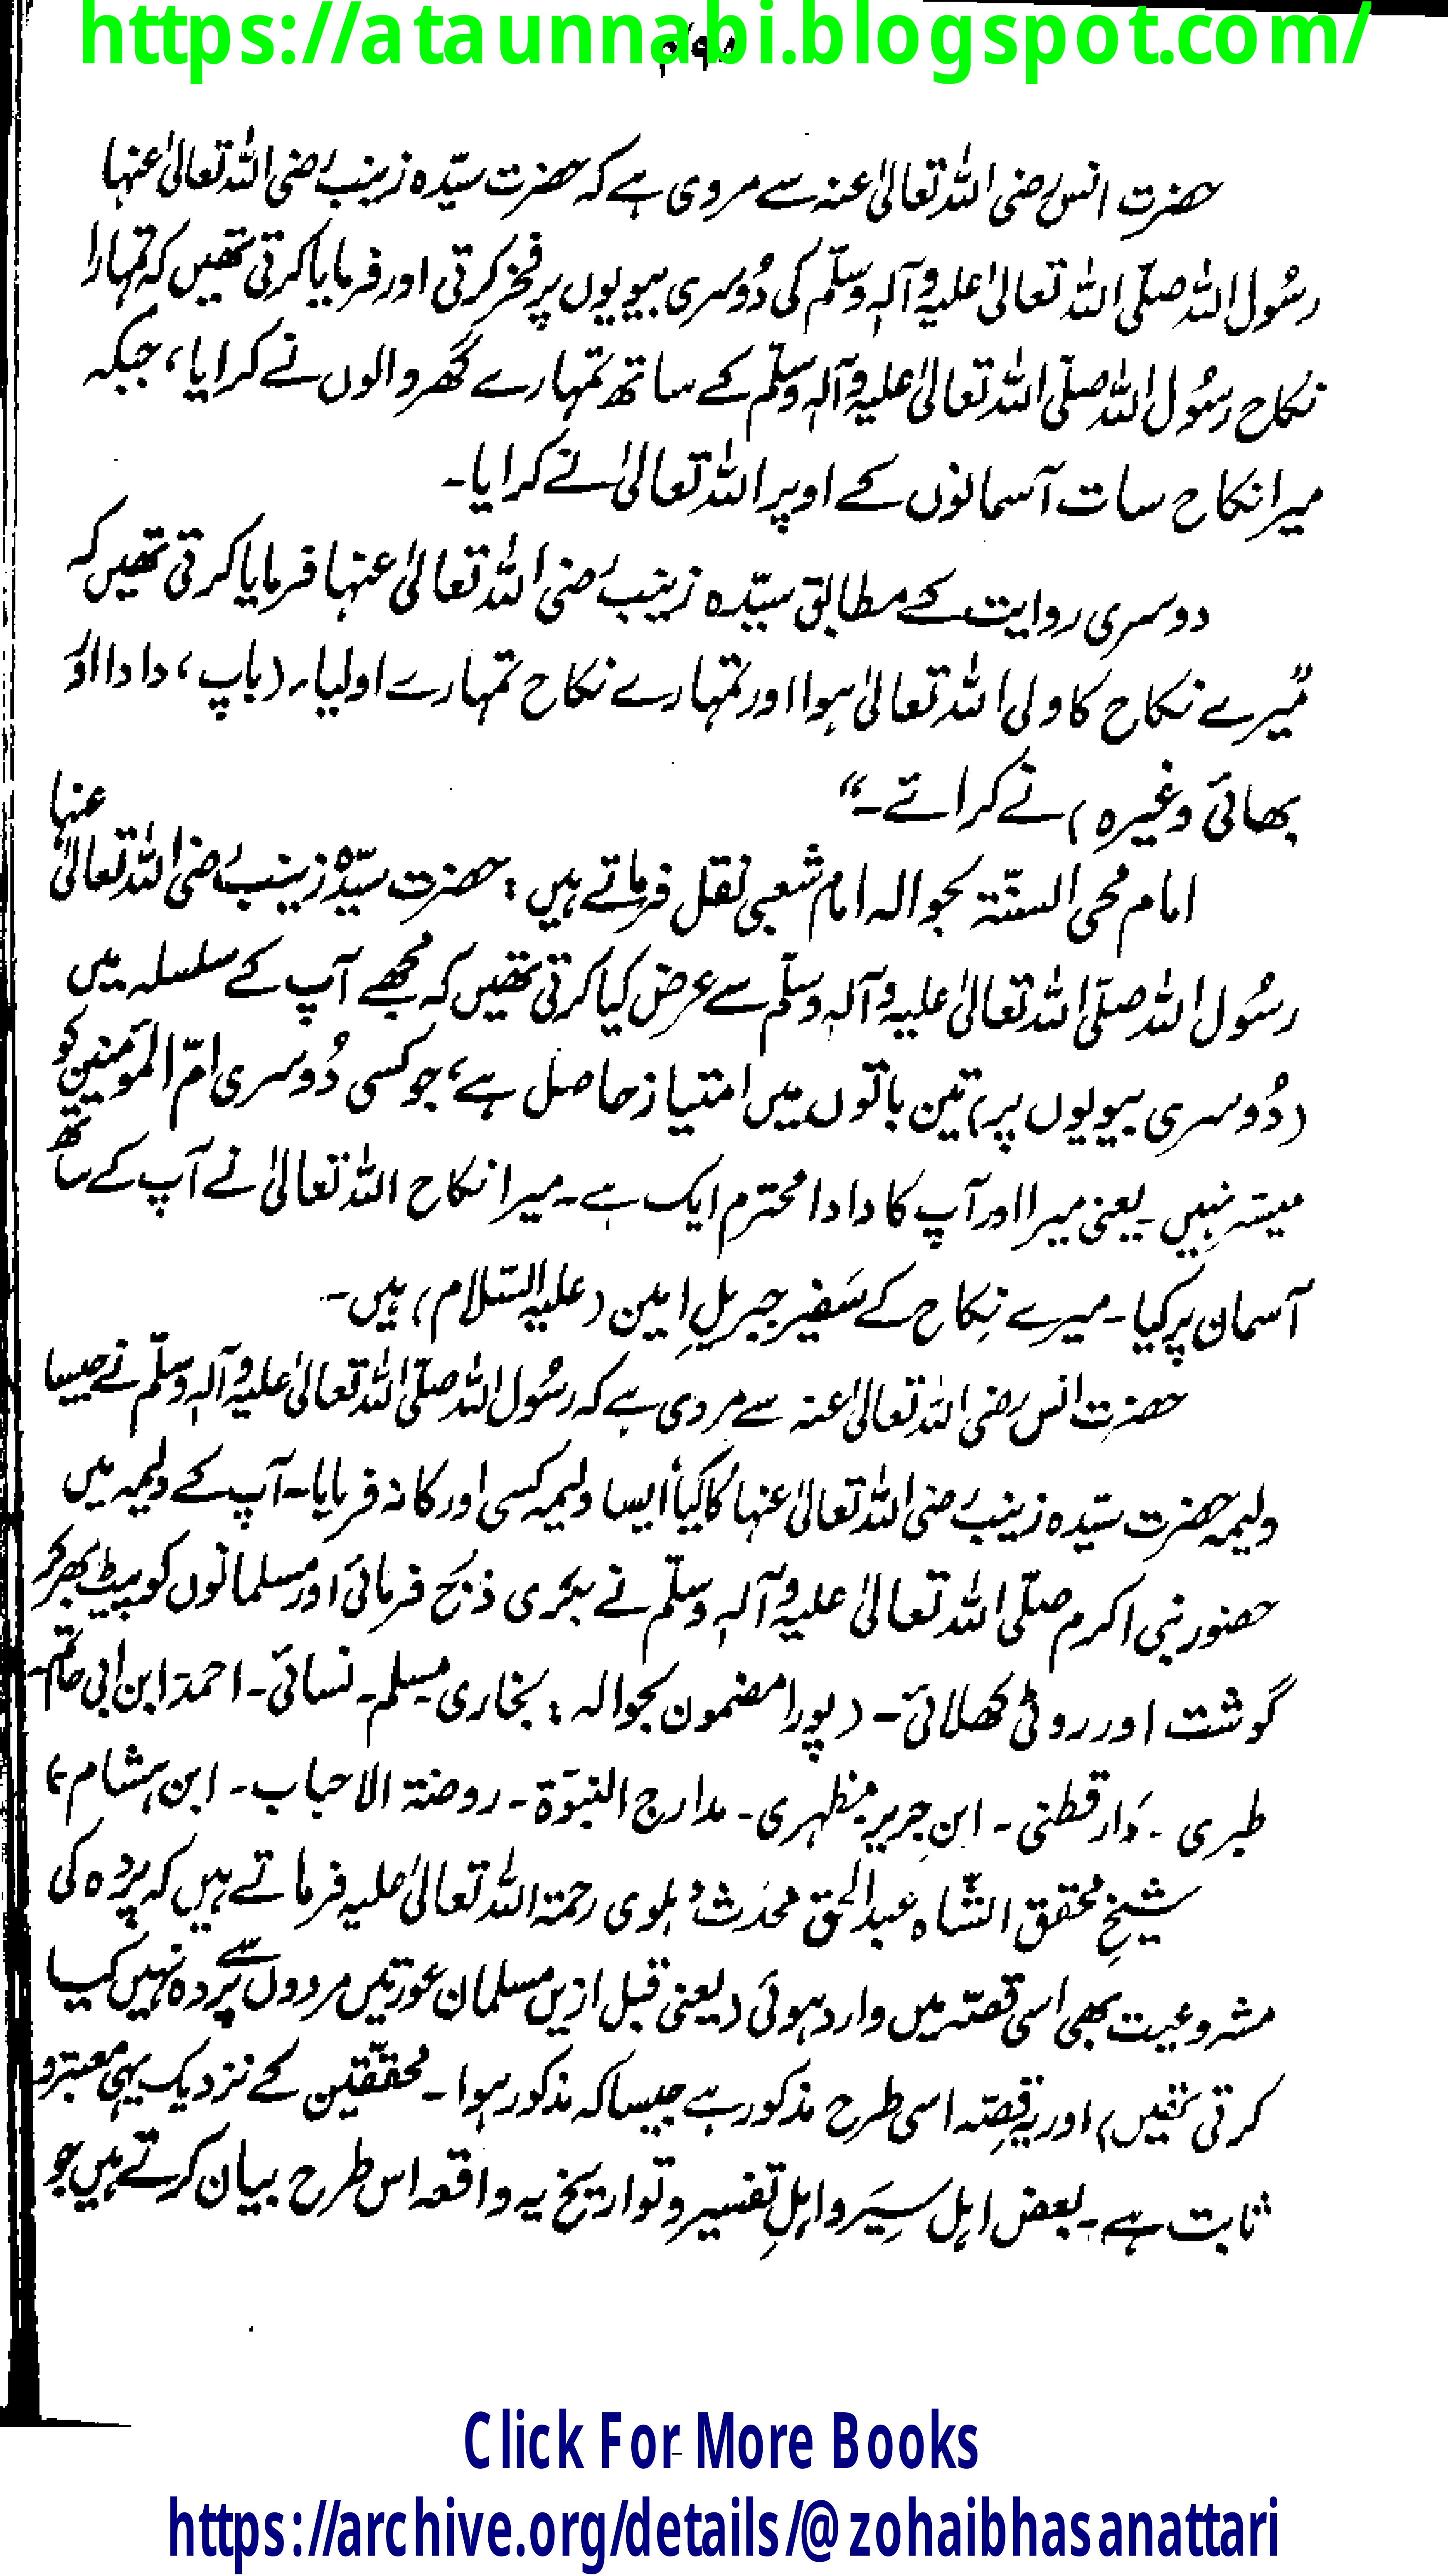 https://ataunnabi.blogspot.com/
حضرت انس رضی اللہ تعالیٰ عنہ سے مروی ہے کہ حضرت سیّدہ زینب رضی اللہ تعالیٰ عنہا
رسُول اللہ صلّی اللہ تعالیٰ علیہ وآلہٖ وسلّم کی دُوسری بیویوں پر فخر کرتی اور فرمایا کرتی تھیں کہ تمہارا
نکاح رسُول اللہ صلّی اللہ تعالیٰ علیہ وآلہٖ وسلّم کے ساتھ تمہارے گھر والوں نے کرایا، جبکہ
میرا نکاح سات آسمانوں کے اوپر اللہ تعالیٰ نے کرایا۔
دوسری روایت کے مطابق سیّدہ زینب رضی اللہ تعالیٰ عنہا فرمایا کرتی تھیں کہ
”میرے نکاح کا ولی اللہ تعالیٰ ہوا اور تمہارے نکاح تمہارے اولیاء (باپ، دادا اور
بھائی وغیرہ) نے کرائے۔“
امام محی السنّۃ بحوالہ امام شعبی نقل فرماتے ہیں: حضرت سیّدہ زینب رضی اللہ تعالیٰ عنہا
رسُول اللہ صلّی اللہ تعالیٰ علیہ وآلہٖ وسلّم سے عرض کیا کرتی تھیں کہ مجھے آپ کے سلسلہ میں
(دُوسری بیویوں پر) تین باتوں میں امتیاز حاصل ہے، جو کسی دُوسری امّ المؤمنین کو
میسّر نہیں۔ یعنی میرا اور آپ کا دادا محترم ایک ہے۔ میرا نکاح اللہ تعالیٰ نے آپ کے ساتھ
آسمان پر کیا۔ میرے نِکاح کے سَفیر جبریلِ امین (علیہ السّلام) ہیں۔
حضرت انس رضی اللہ تعالیٰ عنہ سے مروی ہے کہ رسُول اللہ صلّی اللہ تعالیٰ علیہ وآلہٖ وسلّم نے جیسا
ولیمہ حضرت سیّدہ زینب رضی اللہ تعالیٰ عنہا کا کیا، ایسا ولیمہ کسی اور کا نہ فرمایا۔ آپ کے ولیمہ میں
حضور نبی اکرم صلّی اللہ تعالیٰ علیہ وآلہٖ وسلّم نے بکری ذبح فرمائی اور مسلمانوں کو پیٹ بھر کر
گوشت اور روٹی کھلائی۔ (پورا مضمون بحوالہ: بخاری۔ مسلم۔ نسائی۔ احمد۔ ابن ابی حاتم۔
طبری۔ دَار قطنی۔ ابنِ جریر۔ مظہری۔ مدارج النبوّۃ۔ روضۃ الاحباب۔ ابن ہشام)
شیخِ محقق الشّاہ عبدالحق محدّث دہلوی رحمۃ اللہ تعالیٰ علیہ فرماتے ہیں کہ پردہ کی
مشروعیت بھی اسی قصّہ میں وارد ہوئی (یعنی قبل ازیں مسلمان عورتیں مردوں سے پردہ نہیں کیا
کرتی تھیں) اور یہ قصّہ اسی طرح مذکور ہے جیسا کہ مذکور ہوا۔ محقّقین کے نزدیک یہی معتبر و
ثابت ہے۔ بعض اہل سِیَر و اہلِ تفسیر و تواریخ یہ واقعہ اس طرح بیان کرتے ہیں جو
Click For More Books
https://archive.org/details/@zohaibhasanattari